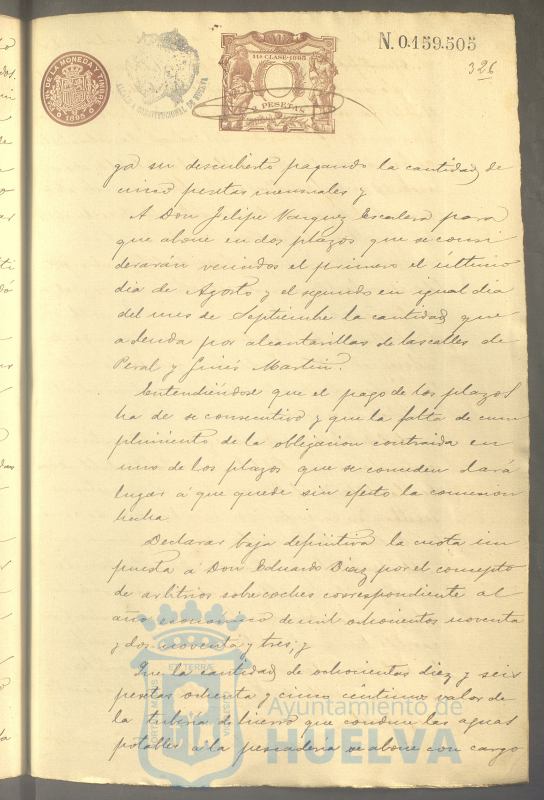 N. 0.159.505
326
DE LA MONEDA Y TIMBRE
1895
CONSTITUCIONAL DE HUELVA
11ª CLASE-1895
2 PESETAS
ga su descubierto pagando la cantidad de
cinco pesetas mensuales y
A Don Felipe Vazquez Escalera para
que abone en dos plazos que se consi
derarán vencidos el primero el último
dia de Agosto y el segundo en igual dia
del mes de Septiembre la cantidad que
adeuda por alcantarillas de las calles de
Peral y Ginés Martin.
Entendiéndose que el pago de los plazos
ha de se consecutivo y que la falta de cum
plimiento de la obligacion contraida en
uno de los plazos que se conceden dará
lugar á que quede sin efecto la concesion
hecha
Declarar baja definitiva la cuota im
puesta a Don Eduardo Diaz por el concepto
de arbitrios sobre coches correspondiente al
año económico de mil ochocientos noventa
y dos noventa y tres; y
Que la cantidad de ochocientas diez y seis
pesetas ochenta y cinco céntimos valor de
la tubería de hierro que conduce las aguas
potables á la pescadería se abone con cargo
PORTUS MARIS ET TERRAE CUSTODIA
Ayuntamiento de
HUELVA